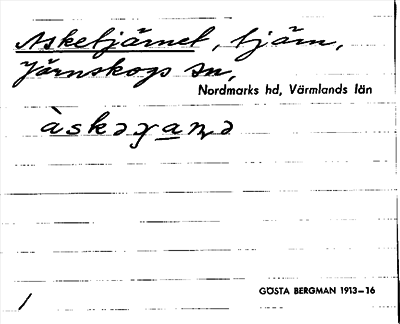 Asketjärnet, tjärn,
Järnskogs sn,
Nordmarks hd, Värmlands län
àskəɣanə
GÖSTA BERGMAN 1913–16
1